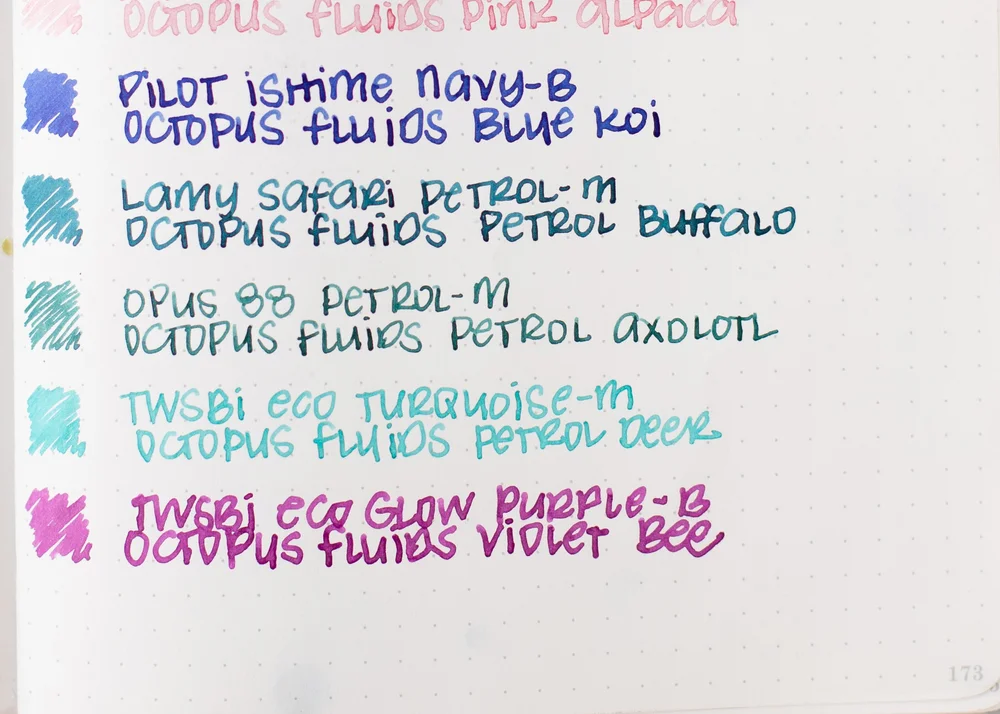 OCTOPUS fluiDS PiNK alpaca
PiLOT ishime Navy-B
OCTOPUS fluiDS Blue Koi
Lamy Safari PETROL-M
OCTOPUS fluiDS PETROL Buffalo
OPUS 88 PETROL-M
OCTOPUS fluiDS PETROL axolOTL
TWSBi eco TURQUOiSe-M
OCTOPUS fluiDS PETROL Deer
TWSBi eco Glow PURPLE-B
OCTOPUS fluiDS ViOleT Bee
173